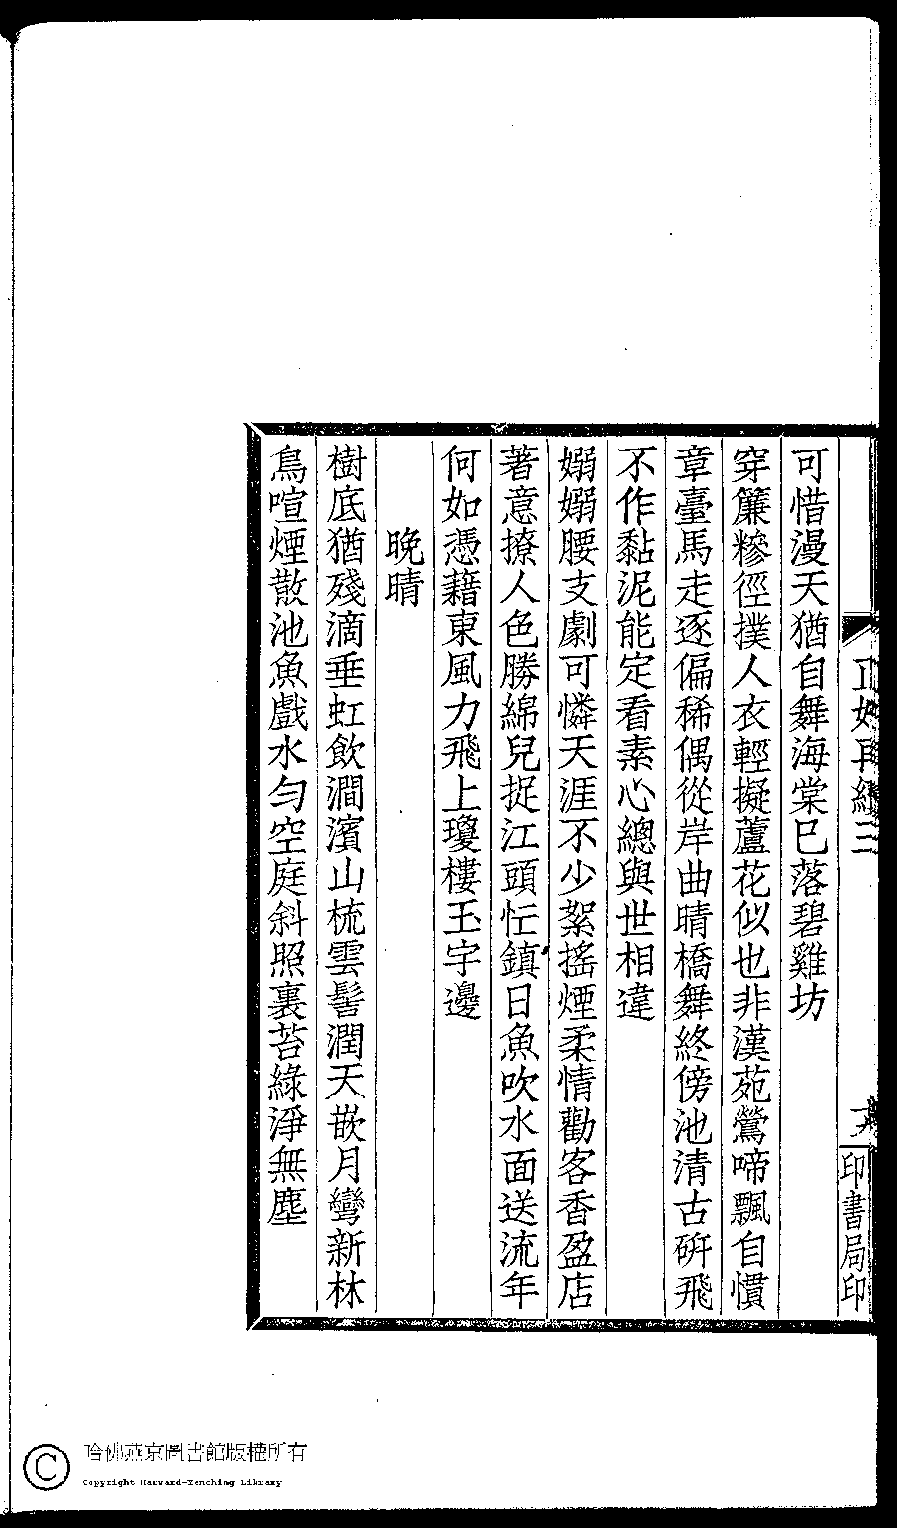 可惜漫天猶自舞海棠已落碧雞坊
穿簾糝徑撲人衣輕擬蘆花似也非漢苑鶯啼飄自慣
章臺馬走逐偏稀偶從岸曲晴橋舞終傍池清古硏飛
不作黏泥能定看素心總與世相違
嫋嫋腰支劇可憐天涯不少絮搖煙柔情勸客香盈店
著意撩人色勝綿兒捉江頭忙鎮日魚吹水面送流年
何如憑藉東風力飛上瓊樓玉宇邊
晚晴
樹底猶殘滴垂虹飲澗濱山梳雲髻潤天嵌月彎新林
鳥喧煙散池魚戲水勻空庭斜照裏苔綠淨無塵
印書局印
哈佛燕京圖書館版權所有
Copyright Harvard-Yenching Library